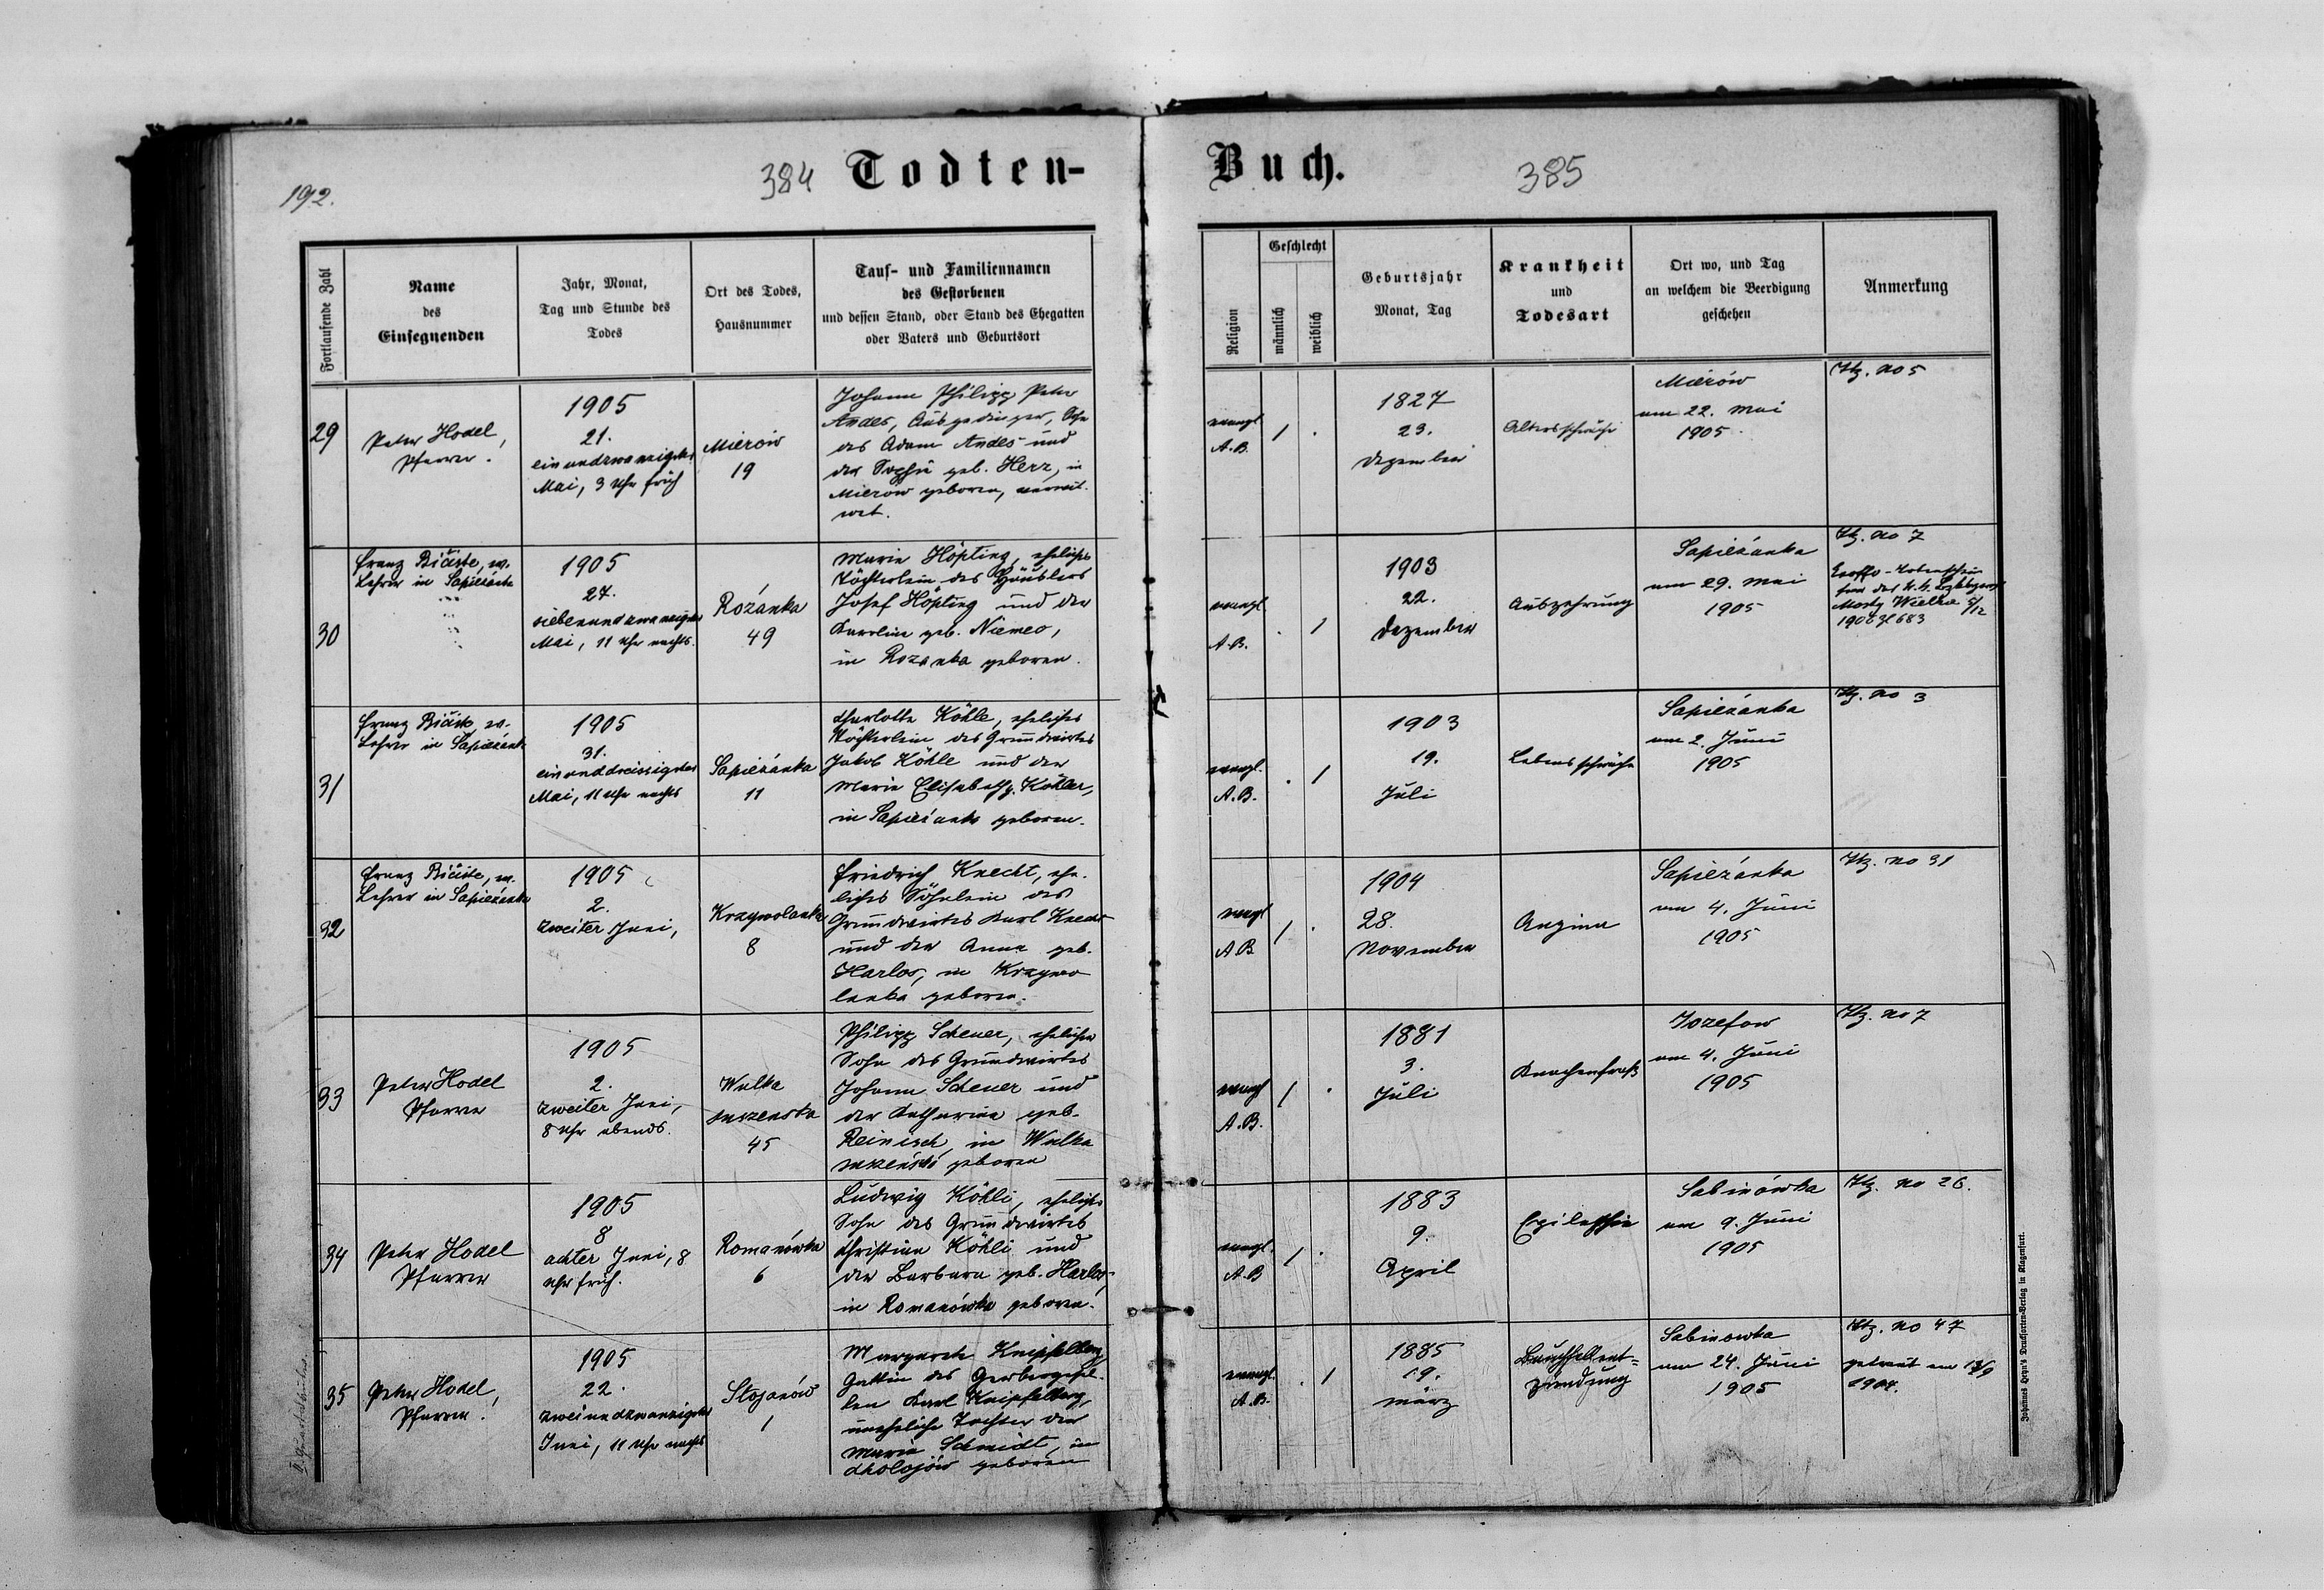 192.
384 Todten-
Buch. 385
Fortlaufende Zahl
Name
des
Einsegnenden
Jahr, Monat,
Tag und Stunde des
Todes
Ort des Todes,
Hausnummer
Tauf- und Familiennamen
des Gestorbenen
und dessen Stand, oder Stand des Ehegatten
oder Vaters und Geburtsort
Religion
Geschlecht
männlich
weiblich
Geburtsjahr
Monat, Tag
Krankheit
und
Todesart
Ort wo, und Tag
an welchem die Beerdigung
geschehen
Anmerkung
29
Peter Hodel,
Pfarrer.
1905
21.
einundzwanzigster
Mai, 3 Uhr früh
Mierów
19
Johann Philipp Peter
Andes, Ausgedinger, Sohn
des Adam Andes und
der Sophie geb. Herz, in
Mierow geboren, verwit-
wet.
evangl.
A.B.
1 .
1827
23.
Dezember
Altersschwäche
Mierów
am 22. Mai
1905.
Htz. no 5
30
Franz ev.
Lehrer in Sapiezanka
1905
27.
siebenundzwanzigster
Mai, 11 Uhr nachts.
Rozánka
49
Maria Höpting, eheliches
Töchterlein des Häuslers
Josef Höpting und der
Karoline geb. Niemeo,
in Rozanka geboren.
evangl.
A.B.
. 1
1903
22.
Dezember
Auszehrung
Sapiezánka
am 29. Mai
1905
Htz. no 7
Mosty Wielkie
31
Franz ev.
Lehrer in Sapiezank
1905
31.
einunddreissigster
Mai, 11 Uhr nachts
Sapiezánka
11
Charlotte Köhle, eheliches
Töchterlein des Grundwirtes
Jakob Köhle und der
Maria Elisabeth g. Köhler,
in Sapiezanka geboren.
evangl.
A.B.
. 1
1903
19.
Juli
Lebensschwäche
Sapiezánka
am 2. Juni
1905
Htz. no 3
32
Franz ev.
Lehrer in Sapiezanka
1905
2.
zweiter Juni,
Krzywolanka
8
Friedrich Knecht, ehe-
liches Söhnlein des
Grundwirtes Karl Knecht
und der Anna geb.
Harlos, in Krzywo
lanka geboren.
evangl
A.B
1 .
1904
28.
November
Angina
Sapiezánka
am 4. Juni
1905
Htz. no 31
33
Peter Hodel
Pfarrer
1905
2.
zweiter Juni,
8 Uhr abends.
Wulka
suszenska
45
Philipp Scheuer, ehelicher
Sohn des Grundwirtes
Johann Scheuer und
der Katharina geb.
Reinisch, in Wulka
geboren
evangl
A.B.
1 .
1881
3.
Juli
Knochenfraß
Jozefow
am 4. Juni
1905
Htz. no 7
34
Peter Hodel
Pfarrer
1905
8
achter Juni, 8
Uhr früh.
Romanówka
6
Ludwig Köhli, ehelicher
Sohn des Grundwirtes
Christian Köhli und
der Barbara geb. Harlos,
in Romanówka geboren.
evangl.
A.B
1 .
1883
9.
April
Epilepsie
Sabinówka
am 9. Juni
1905
Htz. no 26.
35
Peter Hodel,
Pfarrer.
1905
22.
zweiundzwanzigster
Juni, 11 Uhr nachts
Stojanów
1
Margarete Kneipfelberg,
Gattin des Gerbergesel-
len Karl Kneipfelberg,
uneheliche Tochter der
Maria Schmidt, in
Cholojów geboren
evangl.
A.B.
. 1
1885
19.
März
Bauchfellent=
zündung
Sabinowka
am 24. Juni
1905
Htz. no 47
getraut am 13/9
1904.
Johannes Heyn's Drucksorten-Verlag in Klagenfurt.